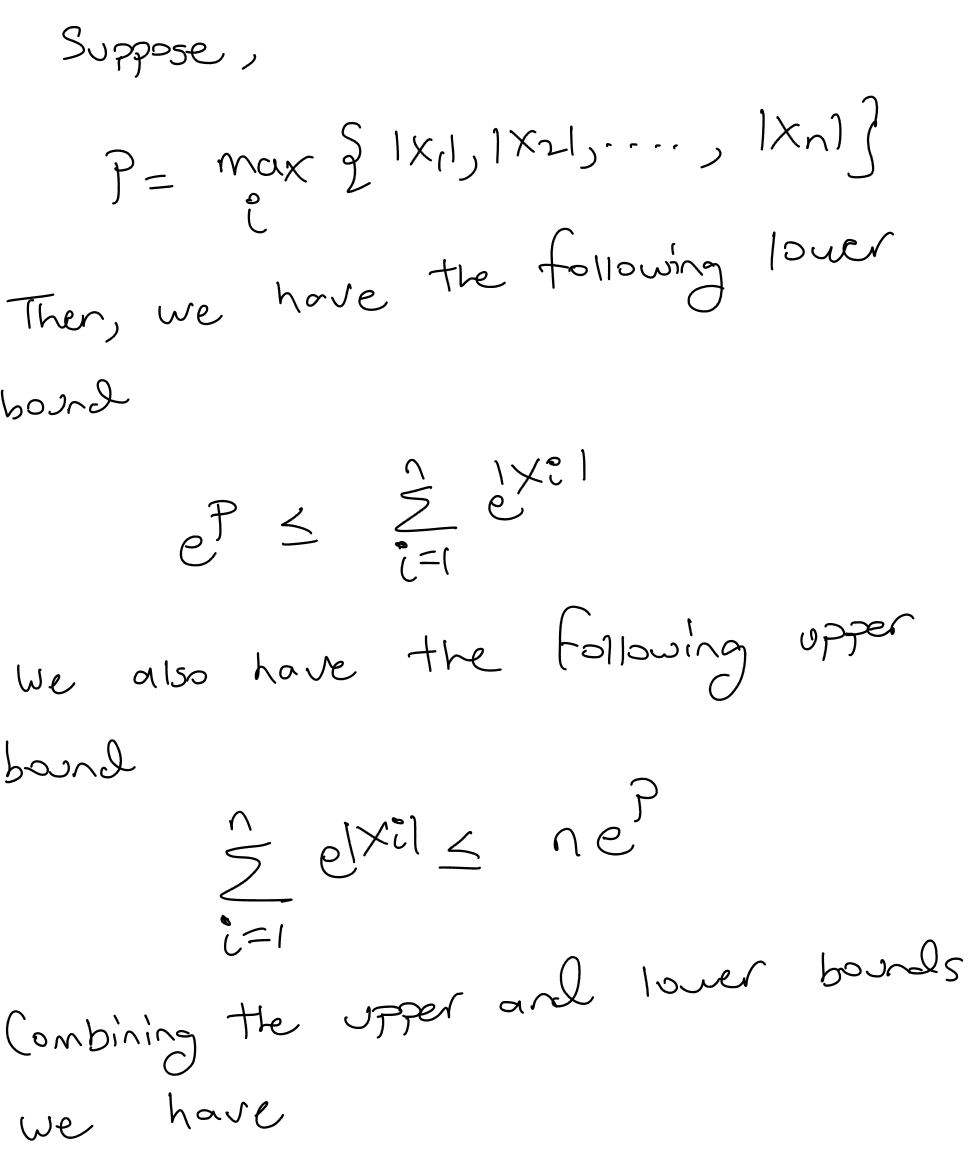 Suppose,
P = max_i { |X_1|, |X_2|, ...., |X_n| }
Then, we have the following lower
bound
e^P ≤ ∑_{i=1}^{n} e^{|X_i|}
We also have the following upper
bound
∑_{i=1}^{n} e^{|X_i|} ≤ n e^P
Combining the upper and lower bounds
we have